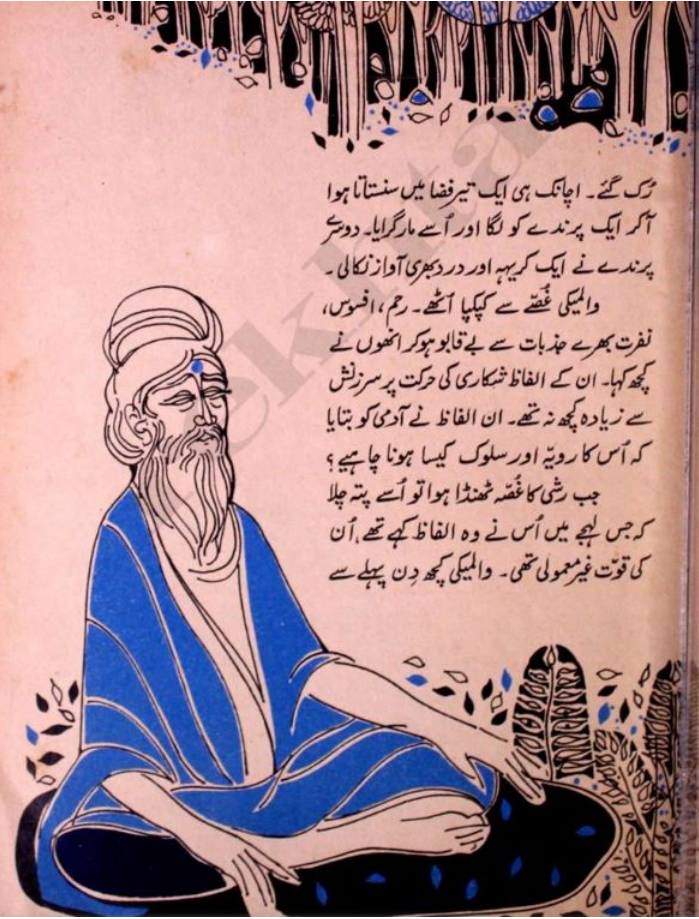 رُک گئے۔ اچانک ہی ایک تیر فضا میں سنسناتا ہوا
آکر ایک پرندے کو لگا اور اُسے مار گرایا۔ دوسرے
پرندے نے ایک کریہہ اور درد بھری آواز نکالی۔
والمیکی غُصّے سے کپکپا اُٹھے۔ رحم، افسوس،
نفرت بھرے جذبات سے بے قابو ہوکر انھوں نے
کچھ کہا۔ ان کے الفاظ شکاری کی حرکت پر سرزنش
سے زیادہ کچھ نہ تھے۔ ان الفاظ نے آدمی کو بتایا
کہ اُس کا رویّہ اور سلوک کیسا ہونا چاہیے؟
جب رشی کا غُصّہ ٹھنڈا ہوا تو اُسے پتہ چلا
کہ جس لہجے میں اُس نے وہ الفاظ کہے تھے، اُن
کی قوّت غیر معمولی تھی۔ والمیکی کچھ دِن پہلے سے
rekhta